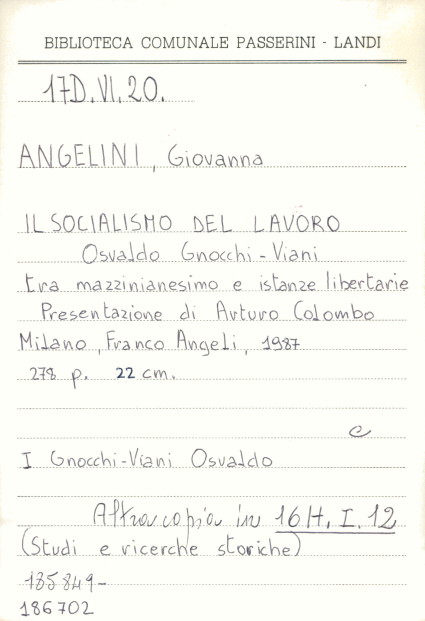 BIBLIOTECA COMUNALE PASSERINI - LANDI
17D.VI.20.
ANGELINI, Giovanna
IL SOCIALISMO DEL LAVORO
Osvaldo Gnocchi-Viani
tra mazzinianesimo e istanze libertarie
Presentazione di Arturo Colombo
Milano, Franco Angeli, 1987
278 p. 22 cm.
e
I Gnocchi-Viani Osvaldo
Altra copia in 16H. I. 12
(Studi e ricerche storiche)
185849-
186702